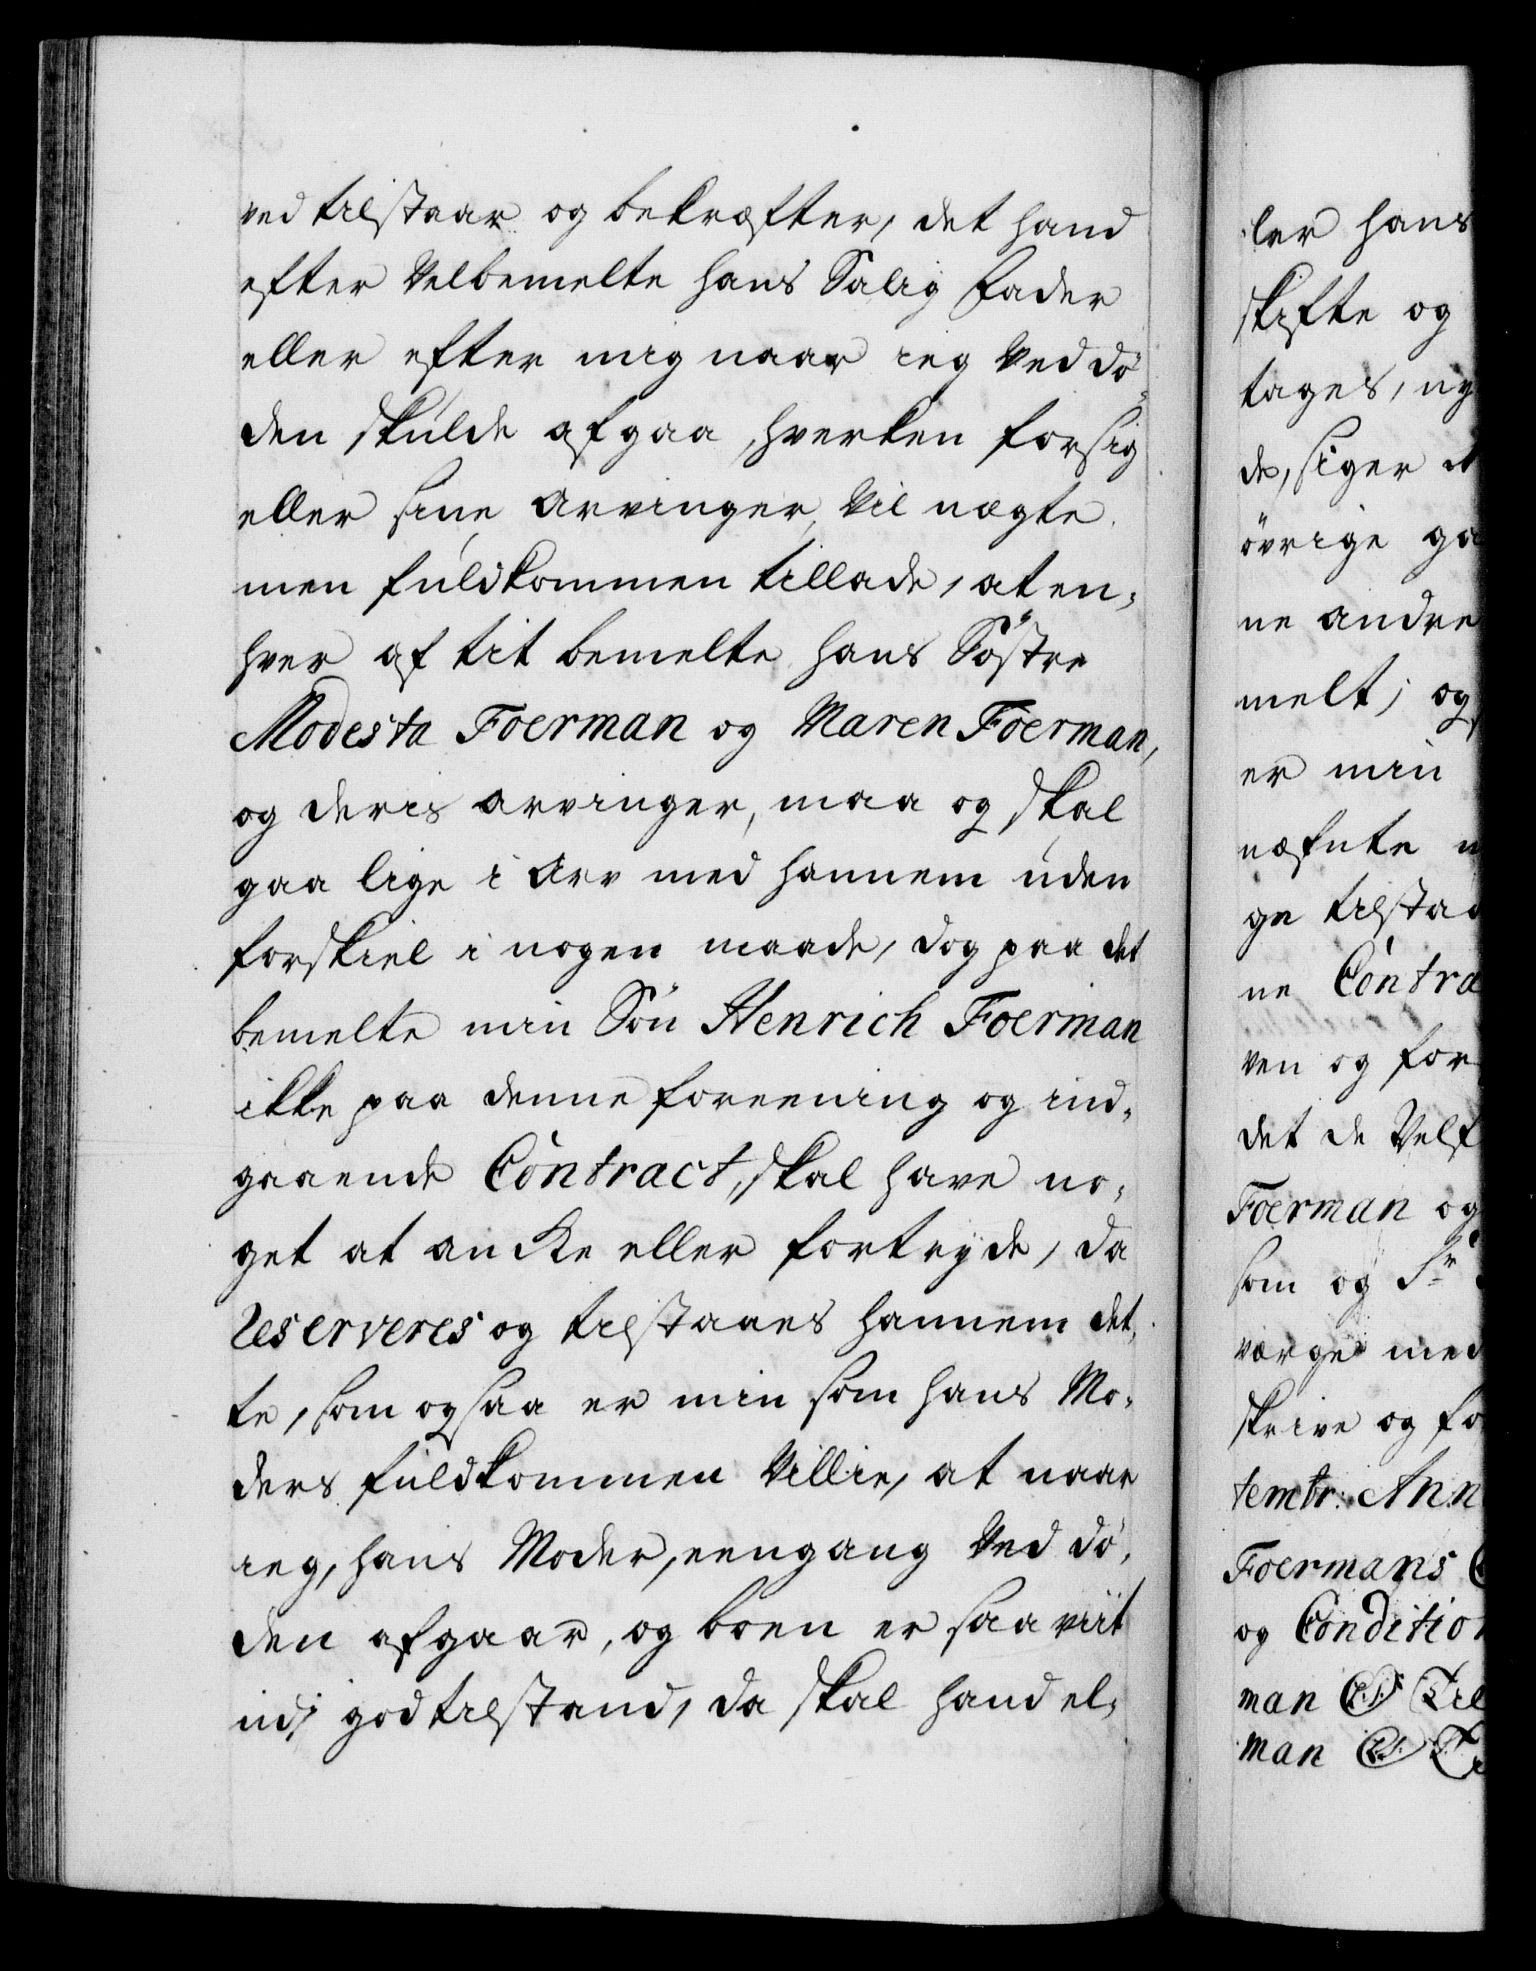 ved tilstaar og bekræfter, det hand
efter Velbemelte hans Salig Fader
eller efter mig naar ieg Ved dö-
den skulde afgaa, hverken forsig
eller sine Arvinger, Vil nægte.
men fuldkommen tillade, at en-
hver af tit bemelte hans Söstre
Modesta Foerman og Maren Foerman,
og deris arvinger, maa og skal
gaa lige i Arv med hannem uden
forskiel i nogen maade, dog paa det
bemelte min Sön Henrich Foerman
ikke paa denne foreening og ind-
gaaende Contract, skal have no-
get at ancke eller fortryde, da
Reserveres og tilstaaes hannem det-
te, som ogsaa er min som hans Mo-
ders fuldkommen Villie, at naar
ieg, hans Moder, eengang Ved dö-
den afgaar, og boen er saa viit
udj god tilstand, da skal hand el-
ler hans
skifte og
tages, ny
de, siger
övrige ga
ne andre
melt; og
er min
næfnte
ge tilstaa
ne Contra
ven og for
det de Velf
Foerman og
som og Sr
værge med
skrive og fo
tembr: Ann
Foermans
og Condition
man (L.S.) Til
man (L.S.)